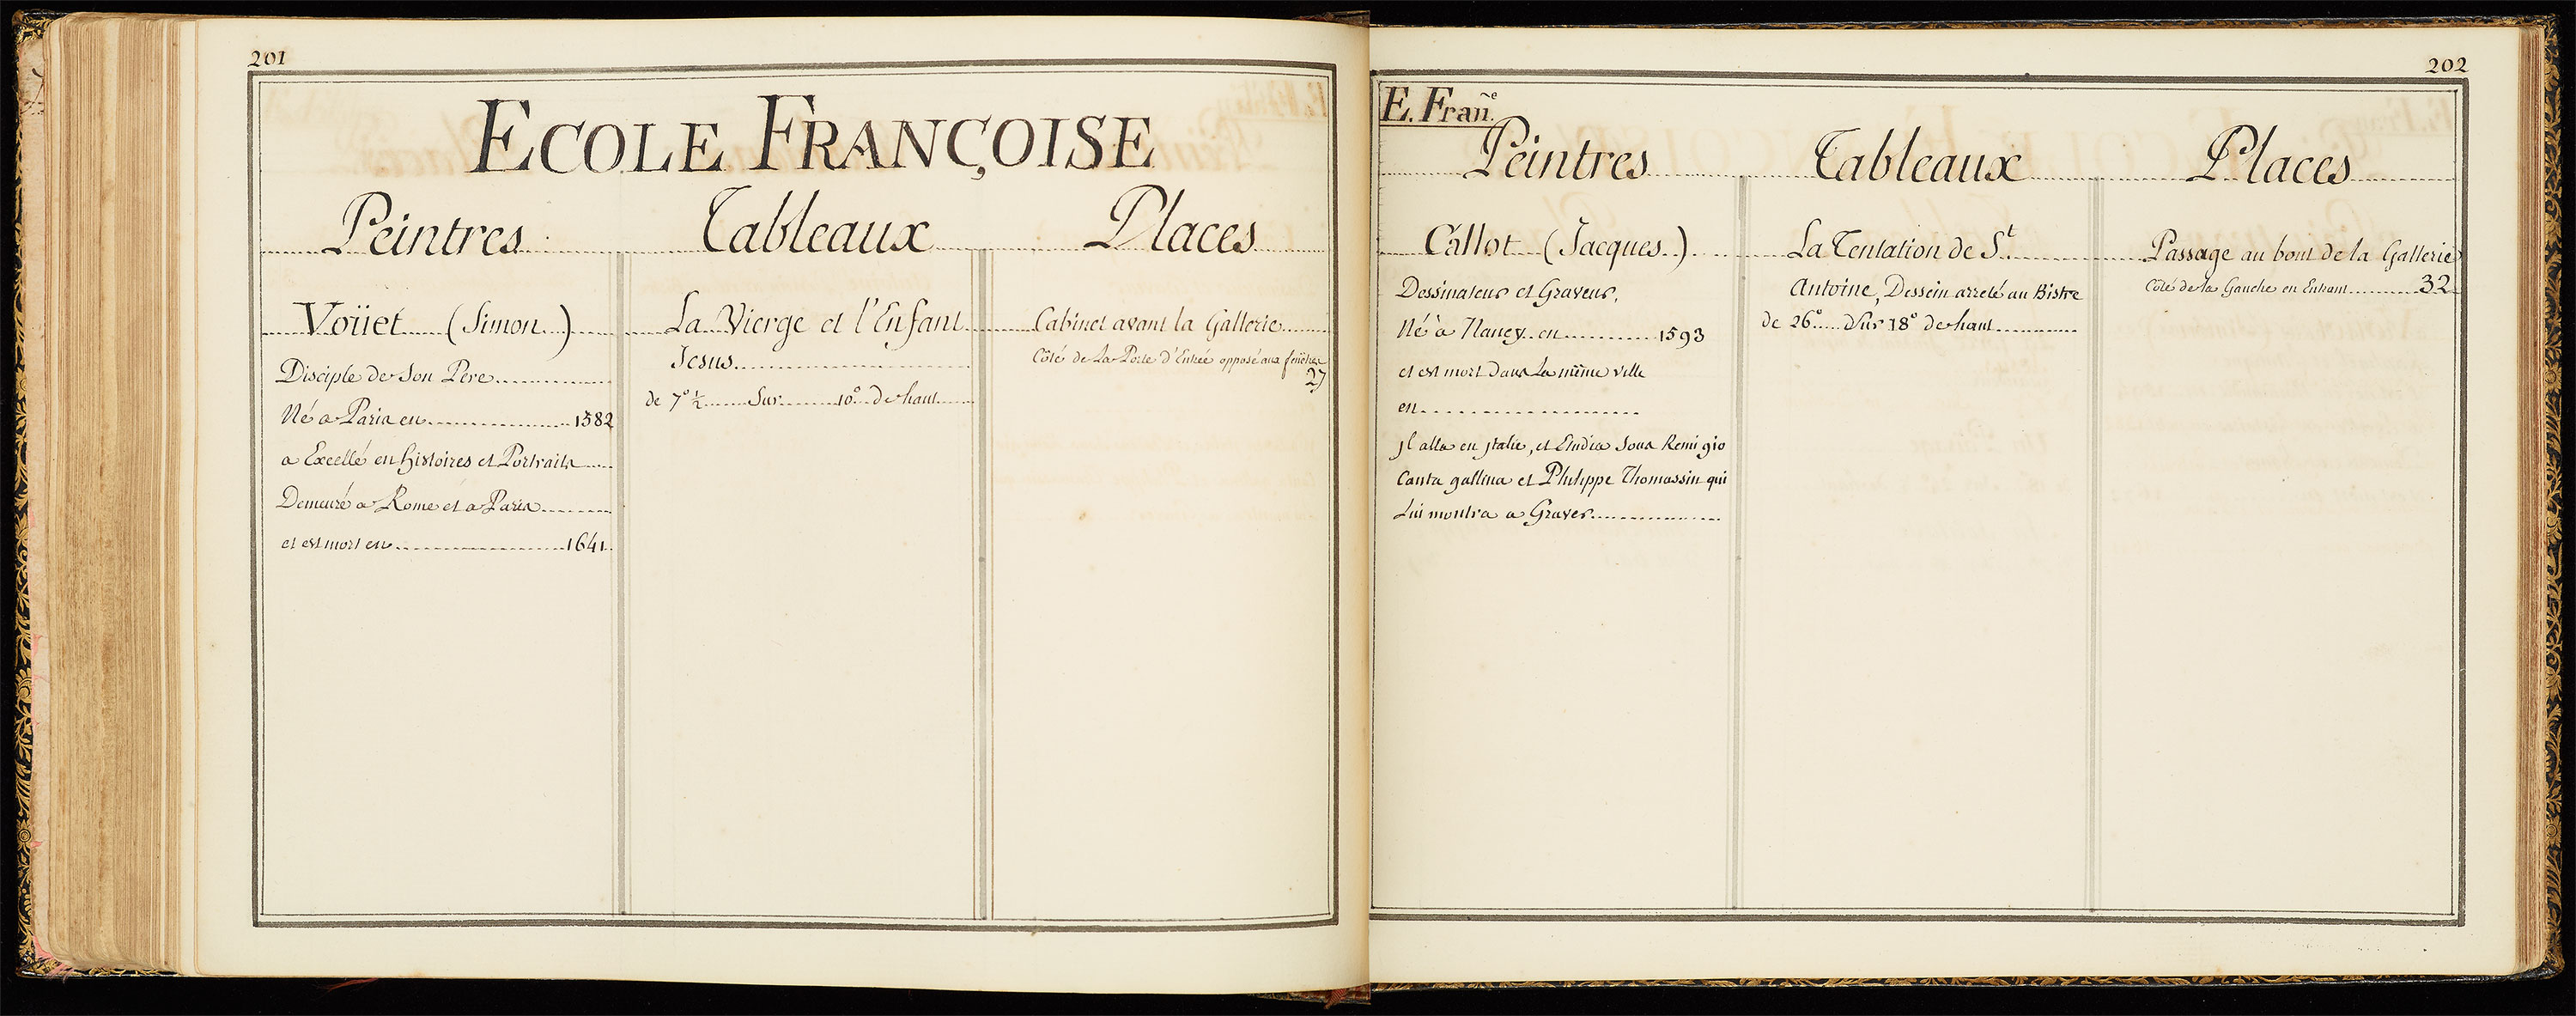 201
ECOLE FRANÇOISE
Peintres
Tableaux
Places
Voüet (Simon)
Disciple de Son Pere
Né a Paris en 1582
a Excellé en histoires et Portraits
Demeuré a Rome et a Paris
et est mort en 1641
La Vierge et l'Enfant
Jesus
de 7° ½ Sur 10° De haut
Cabinet avant la Gallerie
Côté de la Porte d'Entrée opposé aux fenêtres
27
202
E. Frañ.e
Peintres
Tableaux
Places
Callot (Jacques)
Dessinateur et Graveur,
Né à Nancy en 1593
et est mort dans la même ville
en
Jl alla en Jtalie, et Etudia Sous Remi gio
Canta gallina et Philippe Thomassin qui
Lui montra a Graver
La Tentation de St.
Antoine, Dessein arreté au Bistre
de 26° Sur 18° de haut
Passage au bout de la Gallerie
Côté de la Gauche en Entrant 32